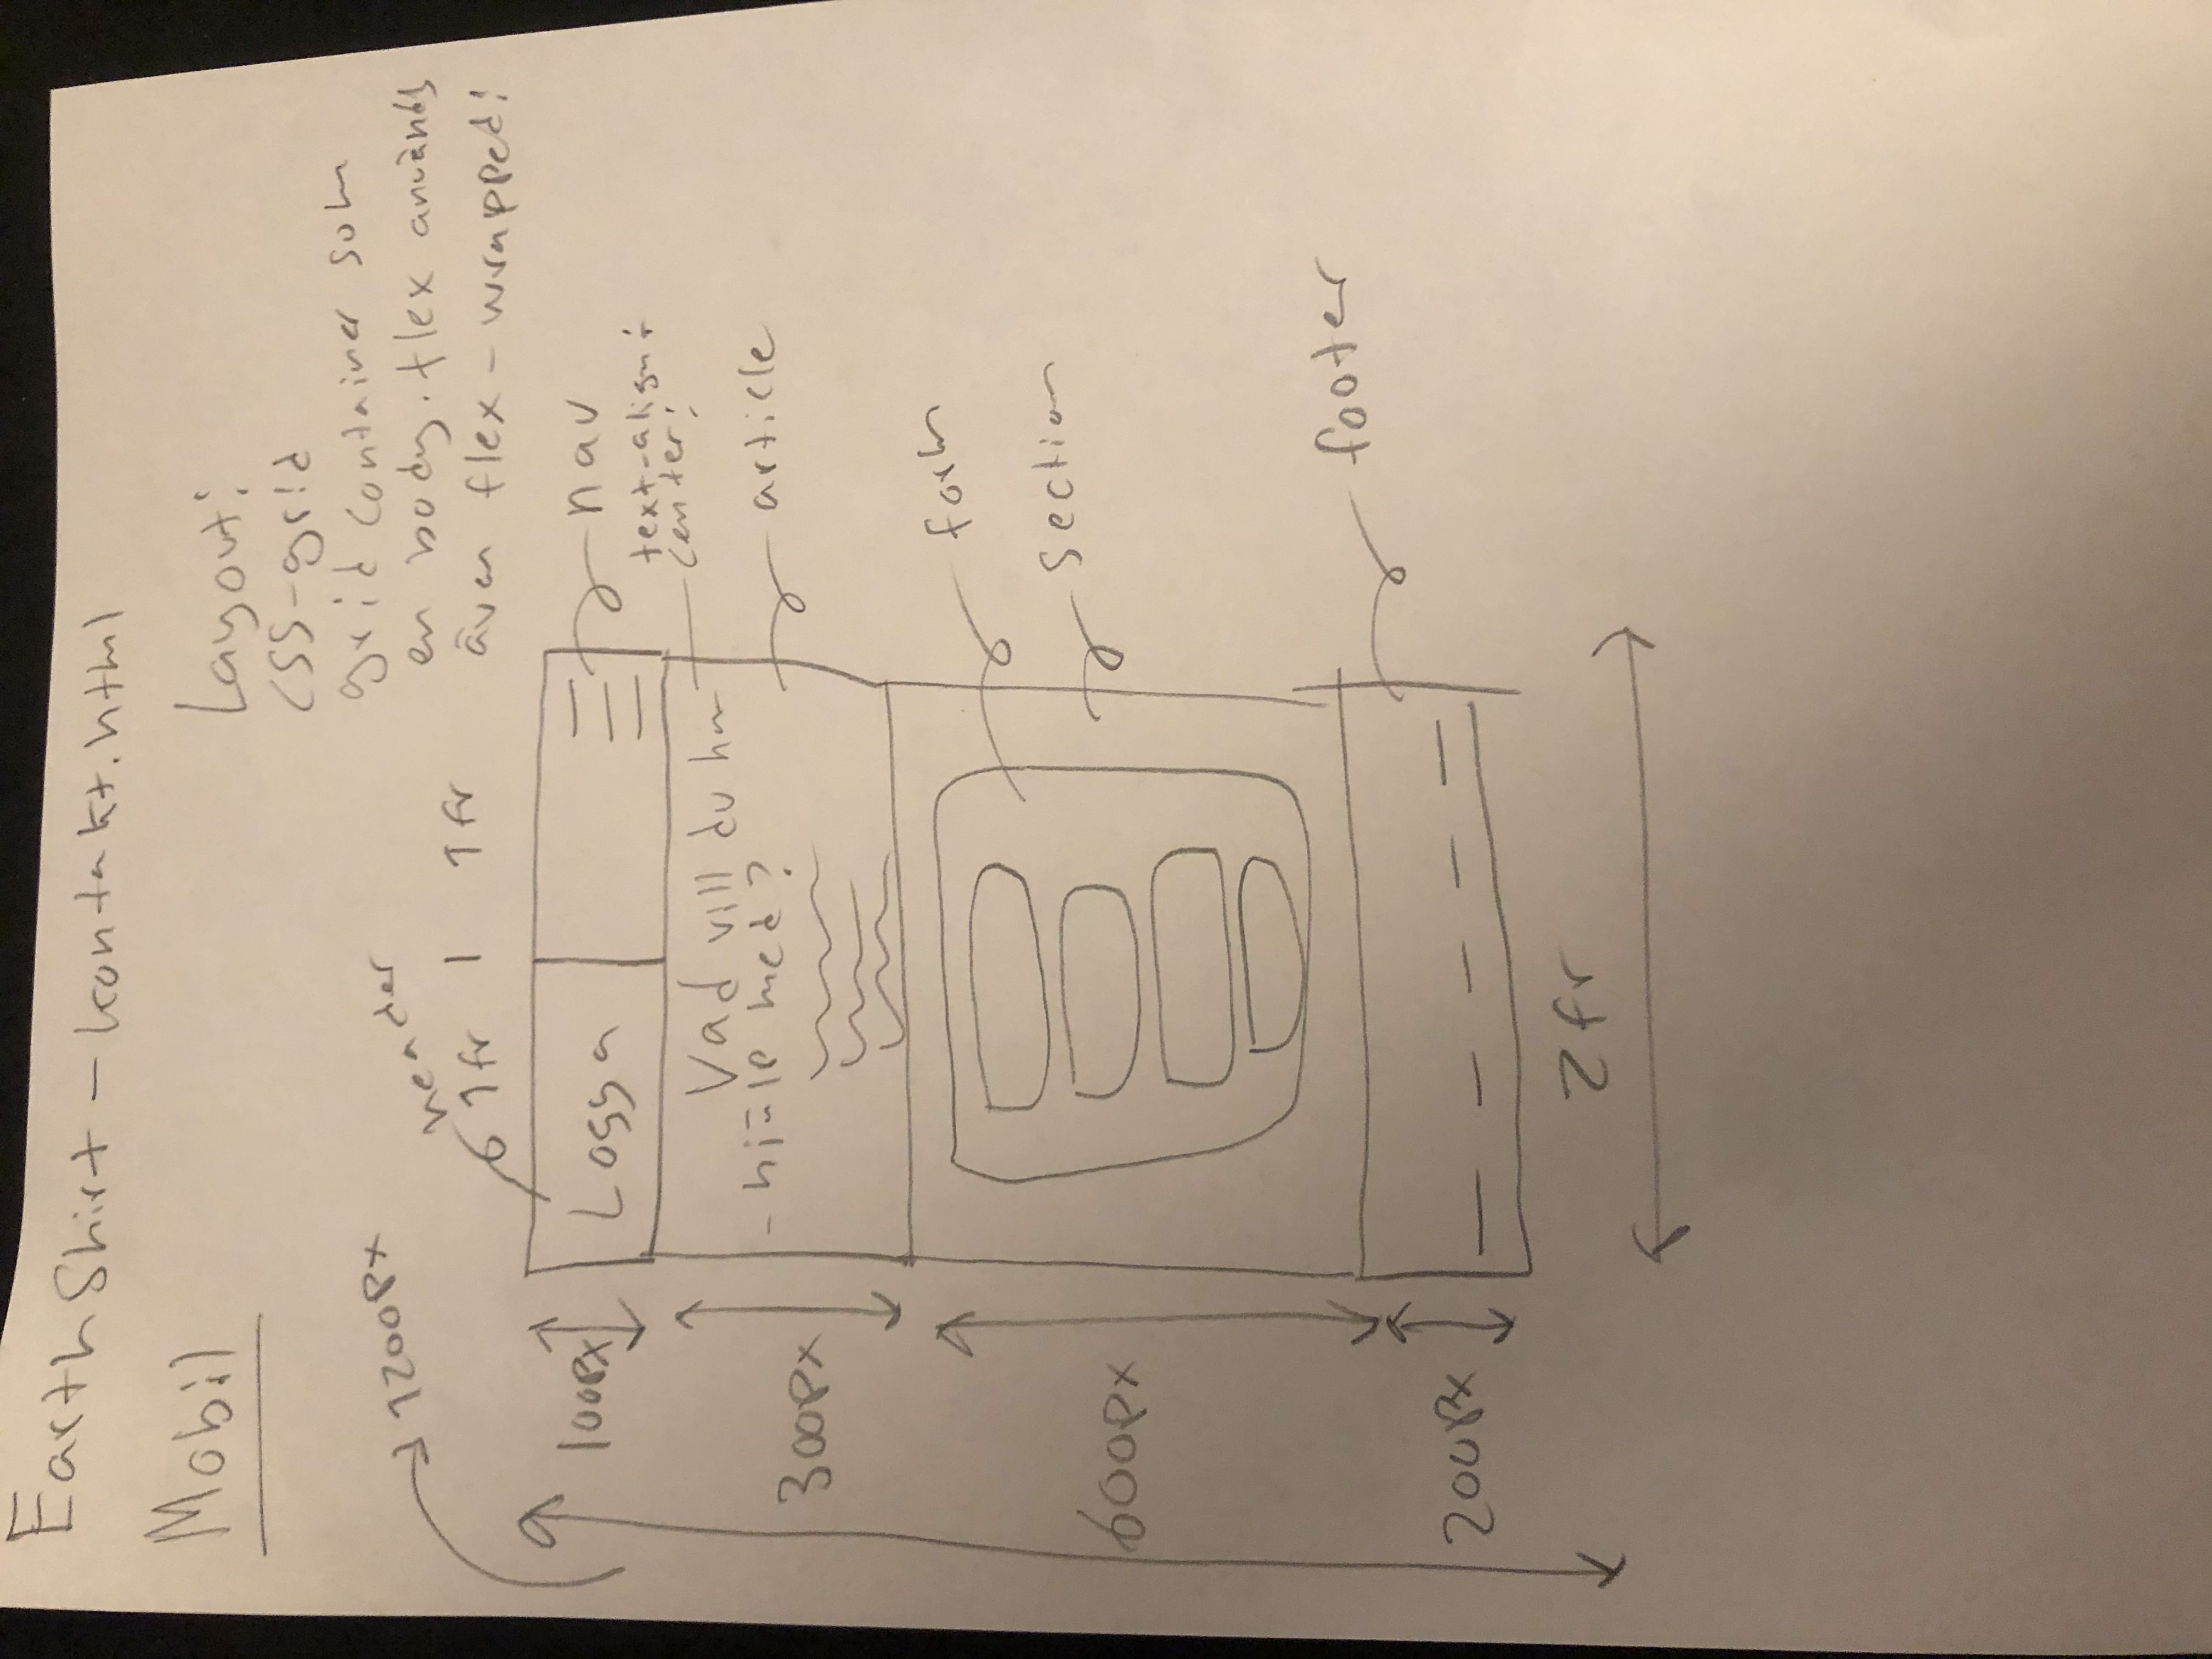 EarthShirt - kontakt.html
Mobil
Layout:
CSS-grid
grid container som
en body. flex används
även flex-wrapped!
1200px
header
1fr | 1fr
100px
Logga
nav
text-align:
center;
Vad vill du ha
- hjälp med?
article
300px
form
section
600px
footer
200px
2fr